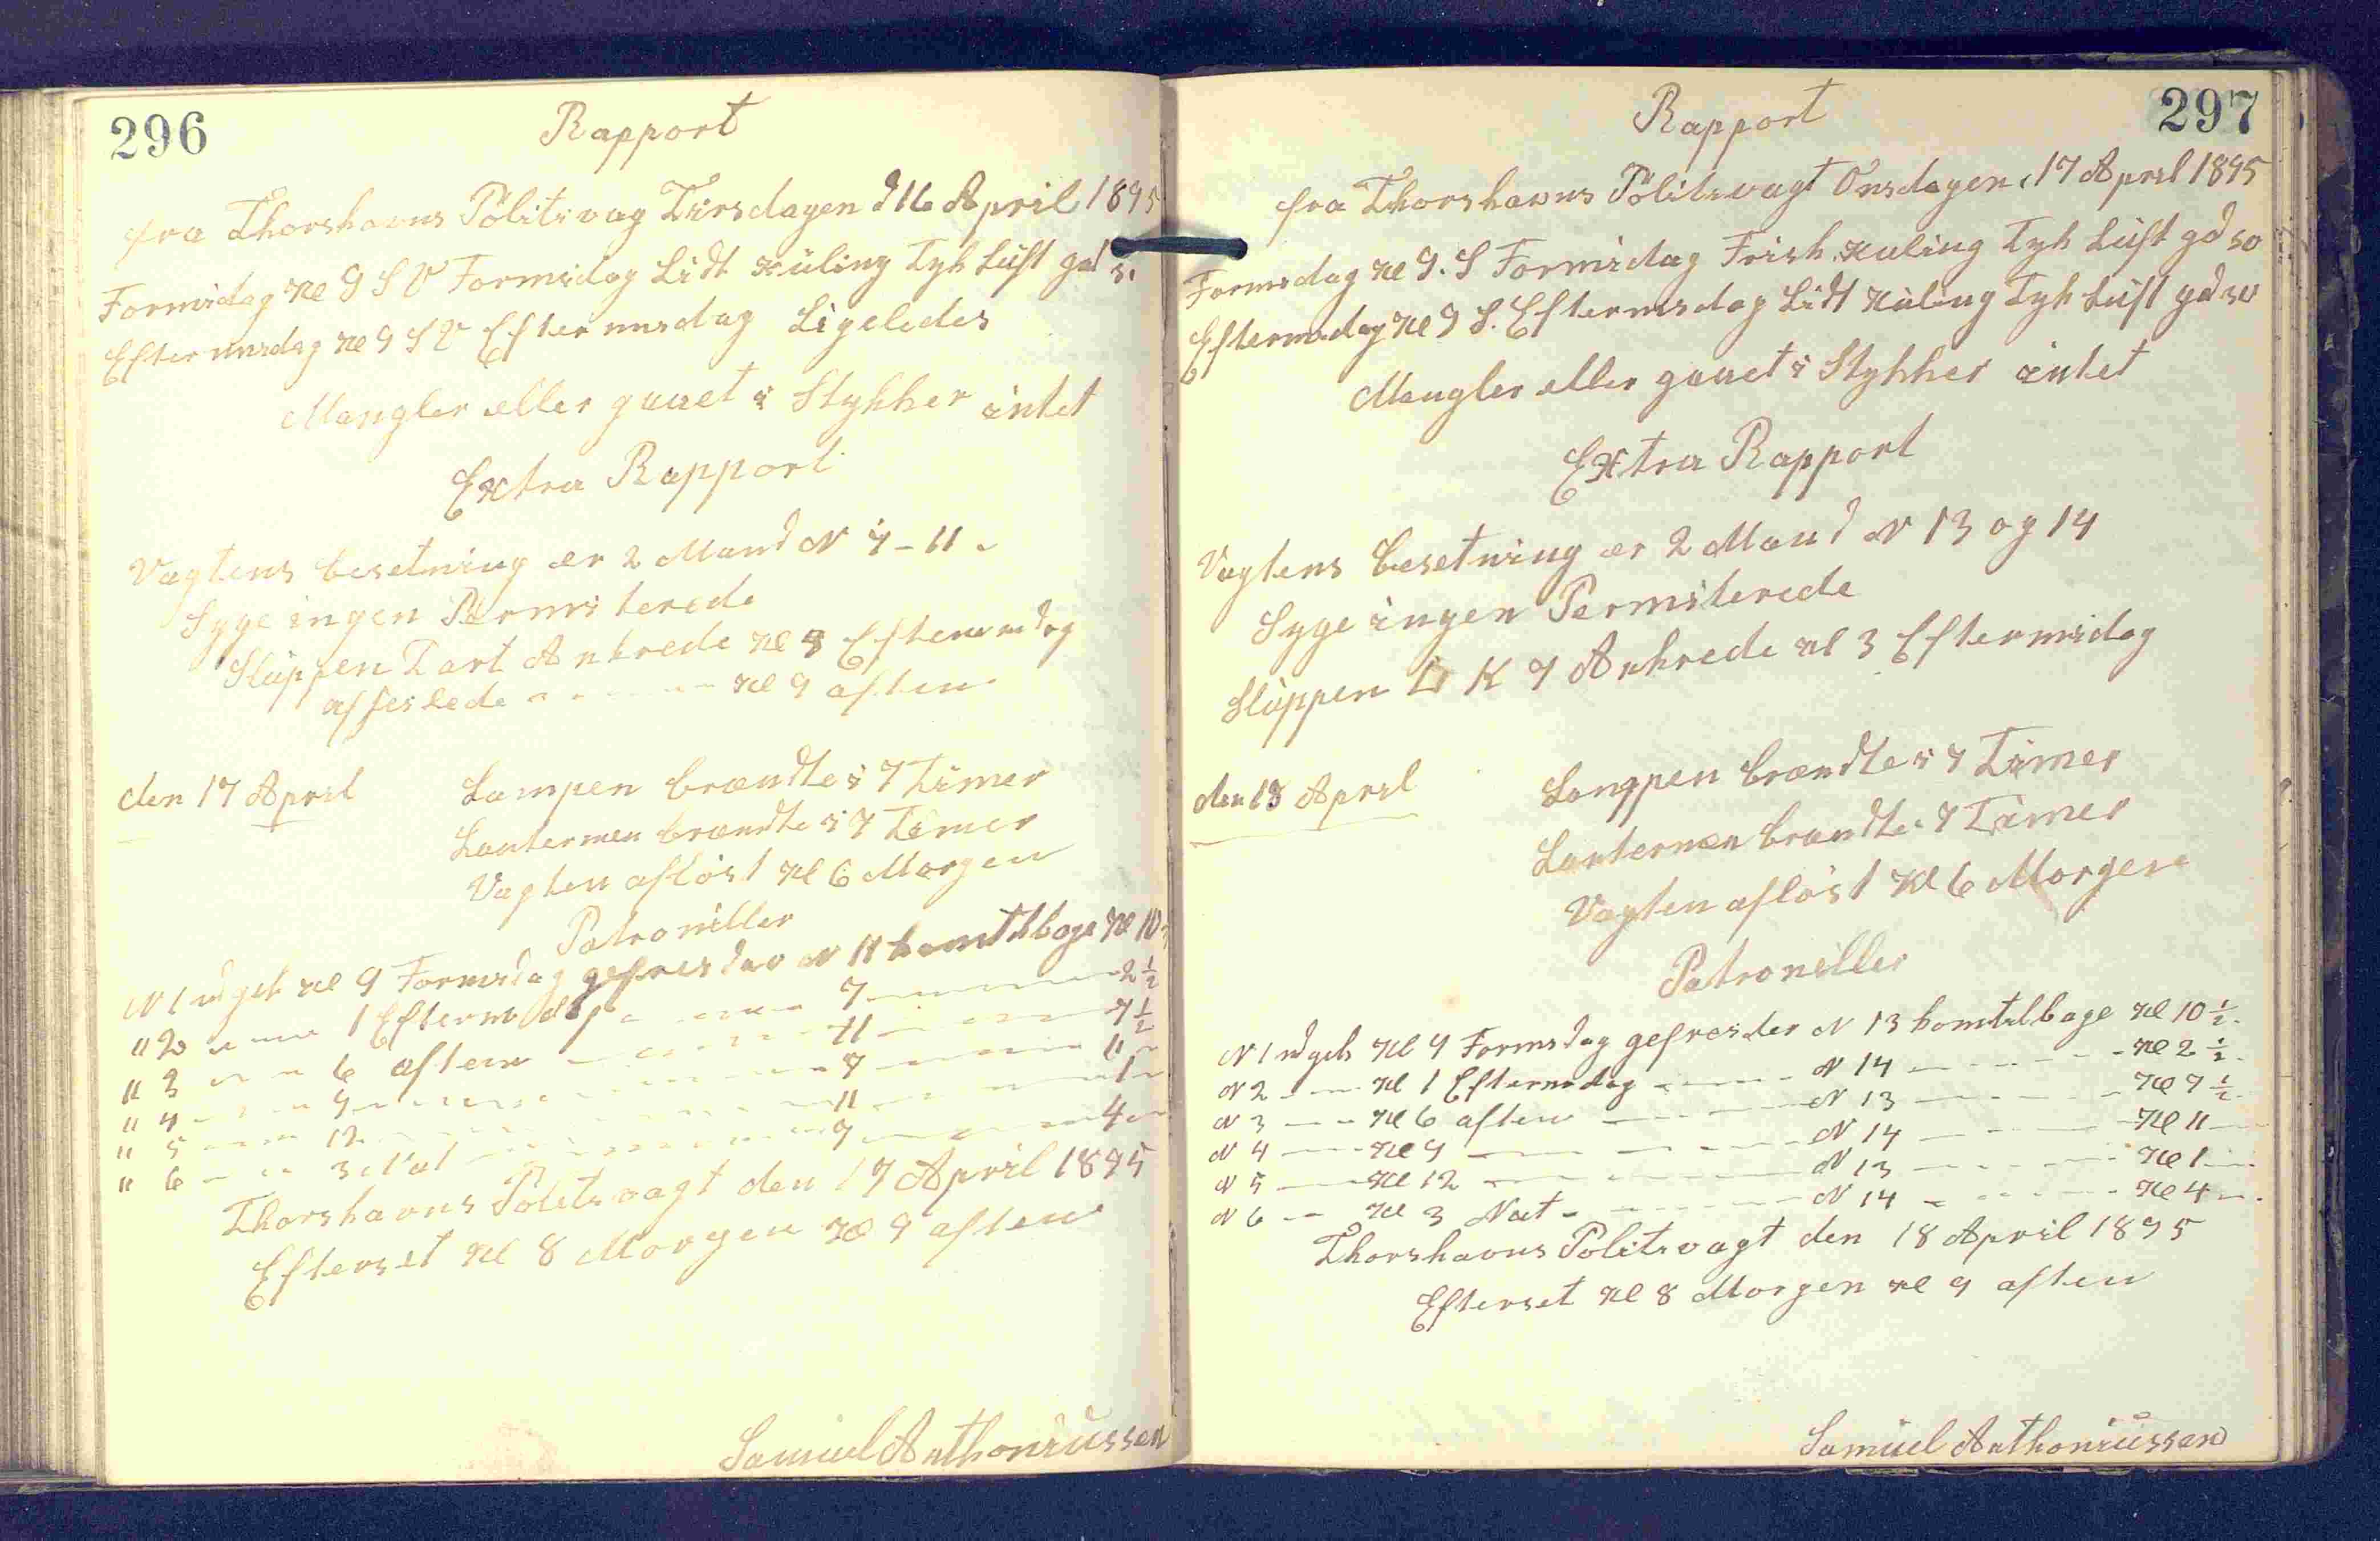 296
Rapport
fra Thorshavns Politivag Tirsdagen d 16 April 1895
Formidag Kl 9 S V Formidag Lidt Kuling Tyk Luft gd
Eftermidag Kl 9 S V Eftermidag Ligeledes
Mangler eller gaaet i Stykker intet
Extra Rapport
Vagtens besetning er 2 Mand N 7 - 11
Syge ingen Permiterede
Sluppen Tart Ankrede Kl 8 Eftermidag
afseilede - - - - Kl 9 aften
den 17 April
Lampen brændte i 7 Timer
Lanternen brændte i 7 Timer
Vagten afløst Kl 6 Morgen
Patroniller
N 1 udgik Kl 9 Formidag gefreider N 11 komtilbage Kl 10
" 2 - - - 1 Eftermidag - - - 7 - - - 2 1/2
" 3 - - - 6 aften - - - 11 - - - 7 1/2
" 4 - - - 9 - - - 7 - - - 11
" 5 - - - 12 - - - 11 - - - 1
" 6 - - - 3 Nat - - - 7 - - - 4
Thorshavns Politivagt den 17 April 1895
Efterset Kl 8 Morgen Kl 9 aften
Samuel Anthoniussen
297
Rapport
fra Thorshavns Politivagt Onsdagen, 17 April 1895
Formidag Kl 9. S Formidag Frisk Kuling Tyk Luft gd so
Eftermidag Kl 9 S. Eftermidag Lidt Kuling Tyk Luft gd so
Mangler eller gaaet i Stykker intet
Extra Rapport
Vagtens besetning er 2 Mand N 13 og 14
Syge ingen Permiterede
Sluppen K 7 Ankrede Kl 3 Eftermidag
den 18 April
Lanppen brændte i 7 Timer
Lanternen brændte i 7 Timer
Vagten afløst Kl 6 Morgen
Patroniller
N 1 udgik Kl 9 Formidag gefreider N 13 komtilbage Kl 10 1/2
N 2 - - - Kl 1 Eftermidag - - - N 14 - - - Kl 2 1/2
N 3 - - - Kl 6 aften - - - N 13 - - - Kl 7 1/2
N 4 - - - Kl 9 - - - N 14 - - - Kl 11
N 5 - - - Kl 12 - - - N 13 - - - Kl 1
N 6 - - - Kl 3 Nat - - - N 14 - - - Kl 4
Thorshavns Politivagt den 18 April 1895
Efterset Kl 8 Morgen Kl 9 aften
Samuel Anthoniussen